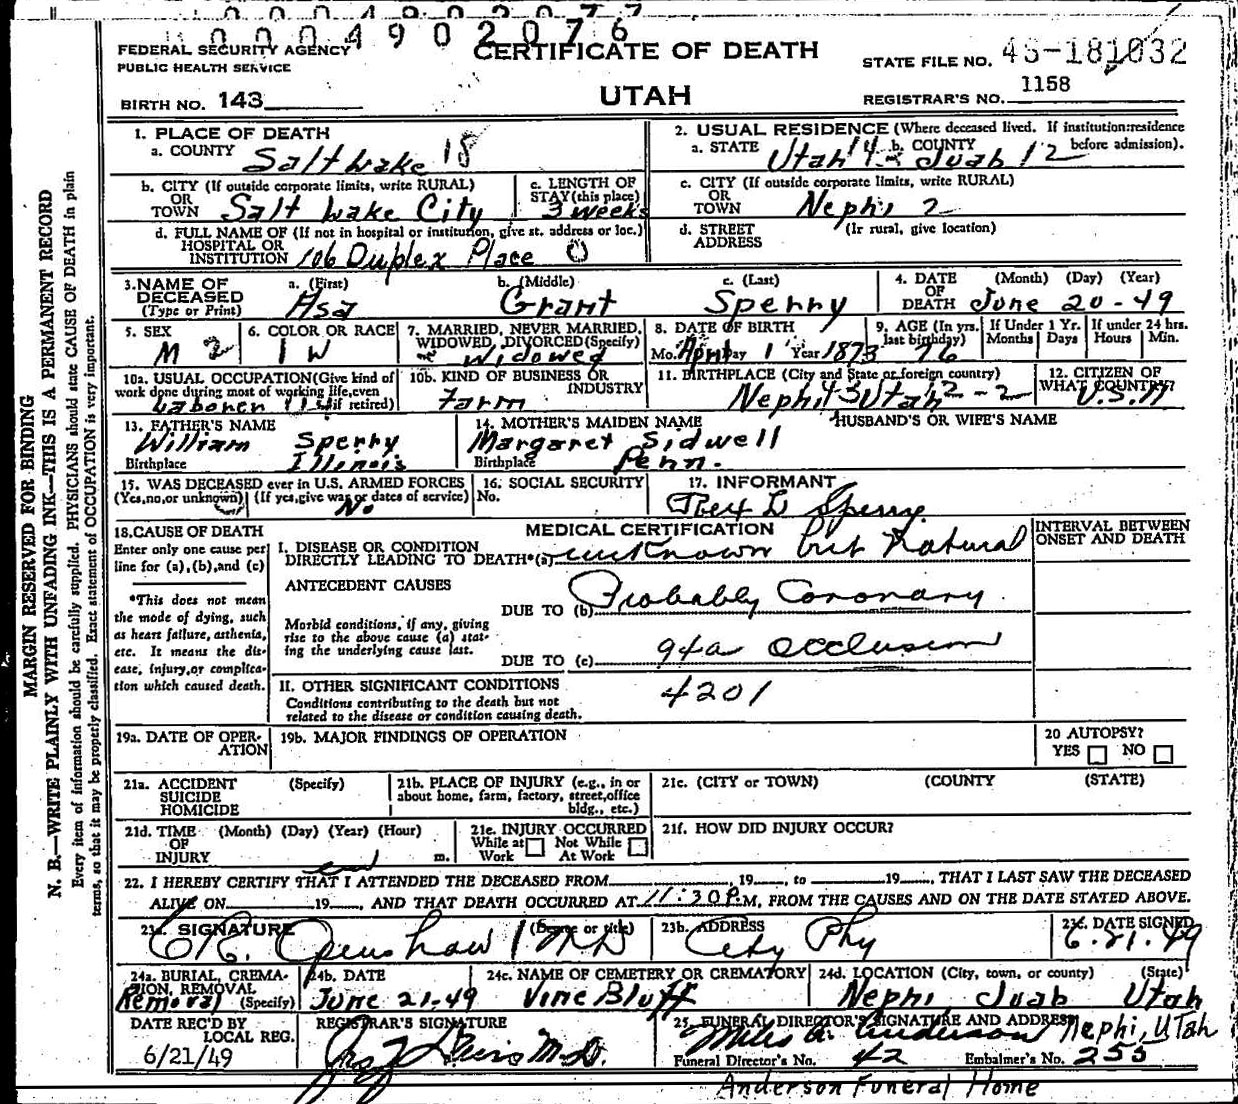 0004902076
FEDERAL SECURITY AGENCY
PUBLIC HEALTH SERVICE
CERTIFICATE OF DEATH
STATE FILE NO. 49-181032
BIRTH NO. 143
UTAH
REGISTRAR'S NO. 1158
1. PLACE OF DEATH
a. COUNTY Salt Lake 18
2. USUAL RESIDENCE (Where deceased lived. If institution:residence before admission).
a. STATE Utah b. COUNTY Juab 12
b. CITY (If outside corporate limits, write RURAL) OR TOWN Salt Lake City
c. LENGTH OF STAY (this place) 3 weeks
c. CITY (If outside corporate limits, write RURAL) OR TOWN Nephi 2
d. FULL NAME OF (If not in hospital or institution, give st. address or loc.) HOSPITAL OR INSTITUTION 106 Duplex Place
d. STREET ADDRESS (Ir rural, give location)
3. NAME OF DECEASED (Type or Print)
a. (First) Asa
b. (Middle) Grant
c. (Last) Sperry
4. DATE OF DEATH (Month) (Day) (Year) June 20-49
5. SEX M 2
6. COLOR OR RACE 1 W
7. MARRIED, NEVER MARRIED, WIDOWED, DIVORCED (Specify) Widowed
8. DATE OF BIRTH Mo. April Day 1 Year 1873
9. AGE (In yrs. last birthday) 76
If Under 1 Yr. Months Days
If under 24 hrs. Hours Min.
10a. USUAL OCCUPATION (Give kind of work done during most of working life, even if retired) Laborer
10b. KIND OF BUSINESS OR INDUSTRY Farm
11. BIRTHPLACE (City and State or foreign country) Nephi 43 Utah 2-2
12. CITIZEN OF WHAT COUNTRY? U.S.A
13. FATHER'S NAME William Sperry
Birthplace Illinois
14. MOTHER'S MAIDEN NAME Margaret Sidwell
Birthplace Penn.
HUSBAND'S OR WIFE'S NAME
15. WAS DECEASED ever in U.S. ARMED FORCES (Yes, no, or unknown) (If yes, give war or dates of service) No
16. SOCIAL SECURITY No.
17. INFORMANT Sperry
18. CAUSE OF DEATH
Enter only one cause per line for (a), (b), and (c)
*This does not mean the mode of dying, such as heart failure, asthenia, etc. It means the disease, injury, or complication which caused death.
MEDICAL CERTIFICATION
INTERVAL BETWEEN ONSET AND DEATH
I. DISEASE OR CONDITION DIRECTLY LEADING TO DEATH*(a) unknown but Natural
ANTECEDENT CAUSES
Morbid conditions, if any, giving rise to the above cause (a) stating the underlying cause last.
DUE TO (b) Probably Coronary
DUE TO (c) 94a occlusion
II. OTHER SIGNIFICANT CONDITIONS 4201
Conditions contributing to the death but not related to the disease or condition causing death.
19a. DATE OF OPERATION
19b. MAJOR FINDINGS OF OPERATION
20 AUTOPSY? YES NO
21a. ACCIDENT SUICIDE HOMICIDE (Specify)
21b. PLACE OF INJURY (e.g., in or about home, farm, factory, street, office bldg., etc.)
21c. (CITY or TOWN) (COUNTY (STATE)
21d. TIME OF INJURY (Month) (Day) (Year) (Hour) m.
21e. INJURY OCCURRED While at Work Not While At Work
21f. HOW DID INJURY OCCUR?
22. I HEREBY CERTIFY THAT I ATTENDED THE DECEASED FROM 19 , to 19 , THAT I LAST SAW THE DECEASED
ALIVE ON 19 , AND THAT DEATH OCCURRED AT 11:30P.M, FROM THE CAUSES AND ON THE DATE STATED ABOVE.
23a. SIGNATURE (Degree or title) Openshaw MD
23b. ADDRESS City Phy
23c. DATE SIGNED 6.21.49
24a. BURIAL, CREMATION, REMOVAL (Specify) Removal
24b. DATE June 21-49
24c. NAME OF CEMETERY OR CREMATORY Vine Bluff
24d. LOCATION (City, town, or county) (State) Nephi Juab Utah
DATE REC'D BY LOCAL REG. 6/21/49
REGISTRAR'S SIGNATURE M.D.
25. FUNERAL DIRECTOR'S SIGNATURE AND ADDRESS Miles A. Anderson Nephi, Utah
Funeral Director's No. 42 Embalmer's No. 255
Anderson Funeral Home
MARGIN RESERVED FOR BINDING
N. B.—WRITE PLAINLY WITH UNFADING INK—THIS IS A PERMANENT RECORD
Every item of information should be carefully supplied. PHYSICIANS should state CAUSE OF DEATH in plain
terms, so that it may be properly classified. Exact statement of OCCUPATION is very important.